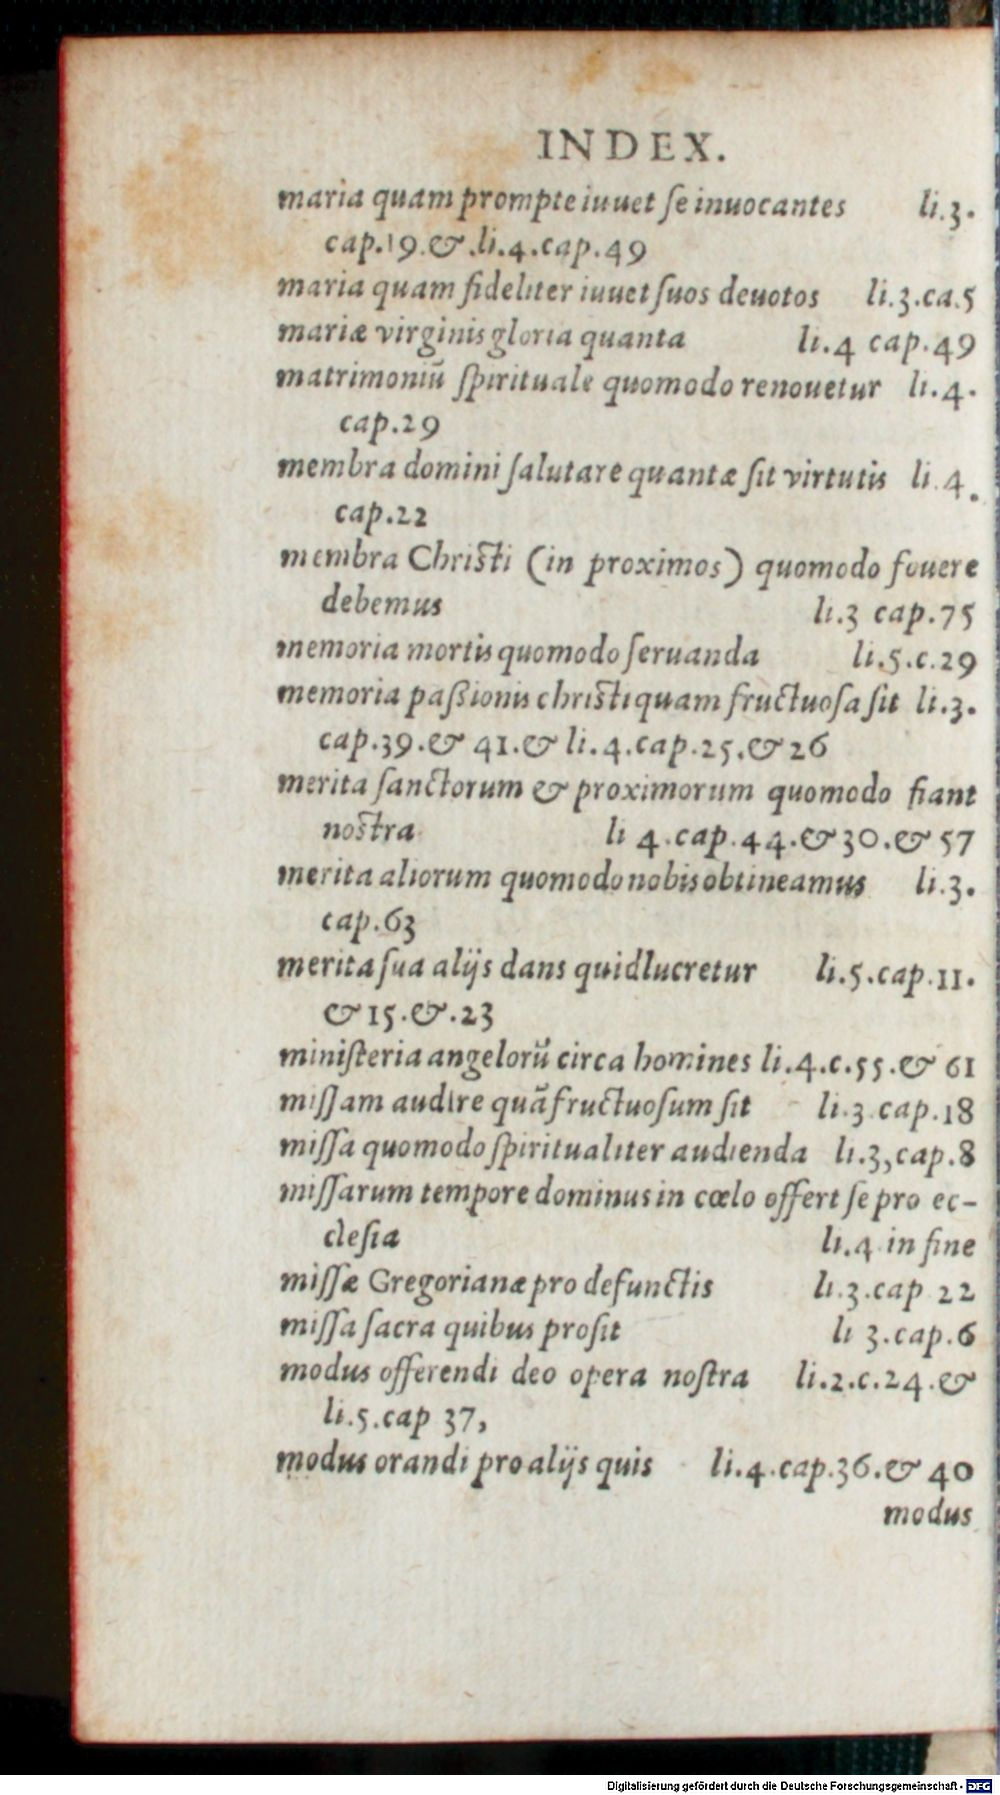 INDEX.
maria quam prompte iuuet ſe inuocantes li.3.
cap.19.&.li.4.cap.49
maria quam fideliter iuuet ſuos deuotos li.3.ca.5
mariæ virginis gloria quanta li.4 cap.49
matrimoniū ſpirituale quomodo renouetur li.4.
cap.29
membra domini ſalutare quantæ ſit virtutis li.4.
cap.22
membra Chriſti (in proximos) quomodo fouere
debemus li.3 cap.75
memoria mortis quomodo ſeruanda li.5.c.29
memoria paßionis chriſti quam fructuoſa ſit li.3.
cap.39.& 41.& li.4.cap.25.& 26
merita ſanctorum & proximorum quomodo fiant
noſtra li 4.cap.44.& 30.& 57
merita aliorum quomodo nobis obtineamus li.3.
cap.63
merita ſua alijs dans quid lucretur li.5.cap.11.
& 15.&.23
miniſteria angelorū circa homines li.4.c.55.& 61
miſſam audire quã fructuoſum ſit li.3.cap.18
miſſa quomodo ſpiritualiter audienda li.3,cap.8
miſſarum tempore dominus in cœlo offert ſe pro ec-
cleſia li.4 in fine
miſſæ Gregorianæ pro defunctis li.3.cap 22
miſſa ſacra quibus proſit li 3.cap.6
modus offerendi deo opera noſtra li.2.c.24.&
li.5.cap 37,
modus orandi pro alijs quis li.4.cap.36.& 40
modus
Digitalisierung gefördert durch die Deutsche Forschungsgemeinschaft - DFG